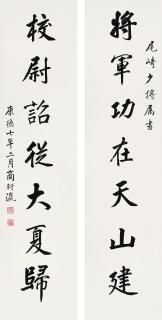 尾崎少將屬書
將軍功在天山建
校尉詔從大夏歸
康德七年二月商衍瀛